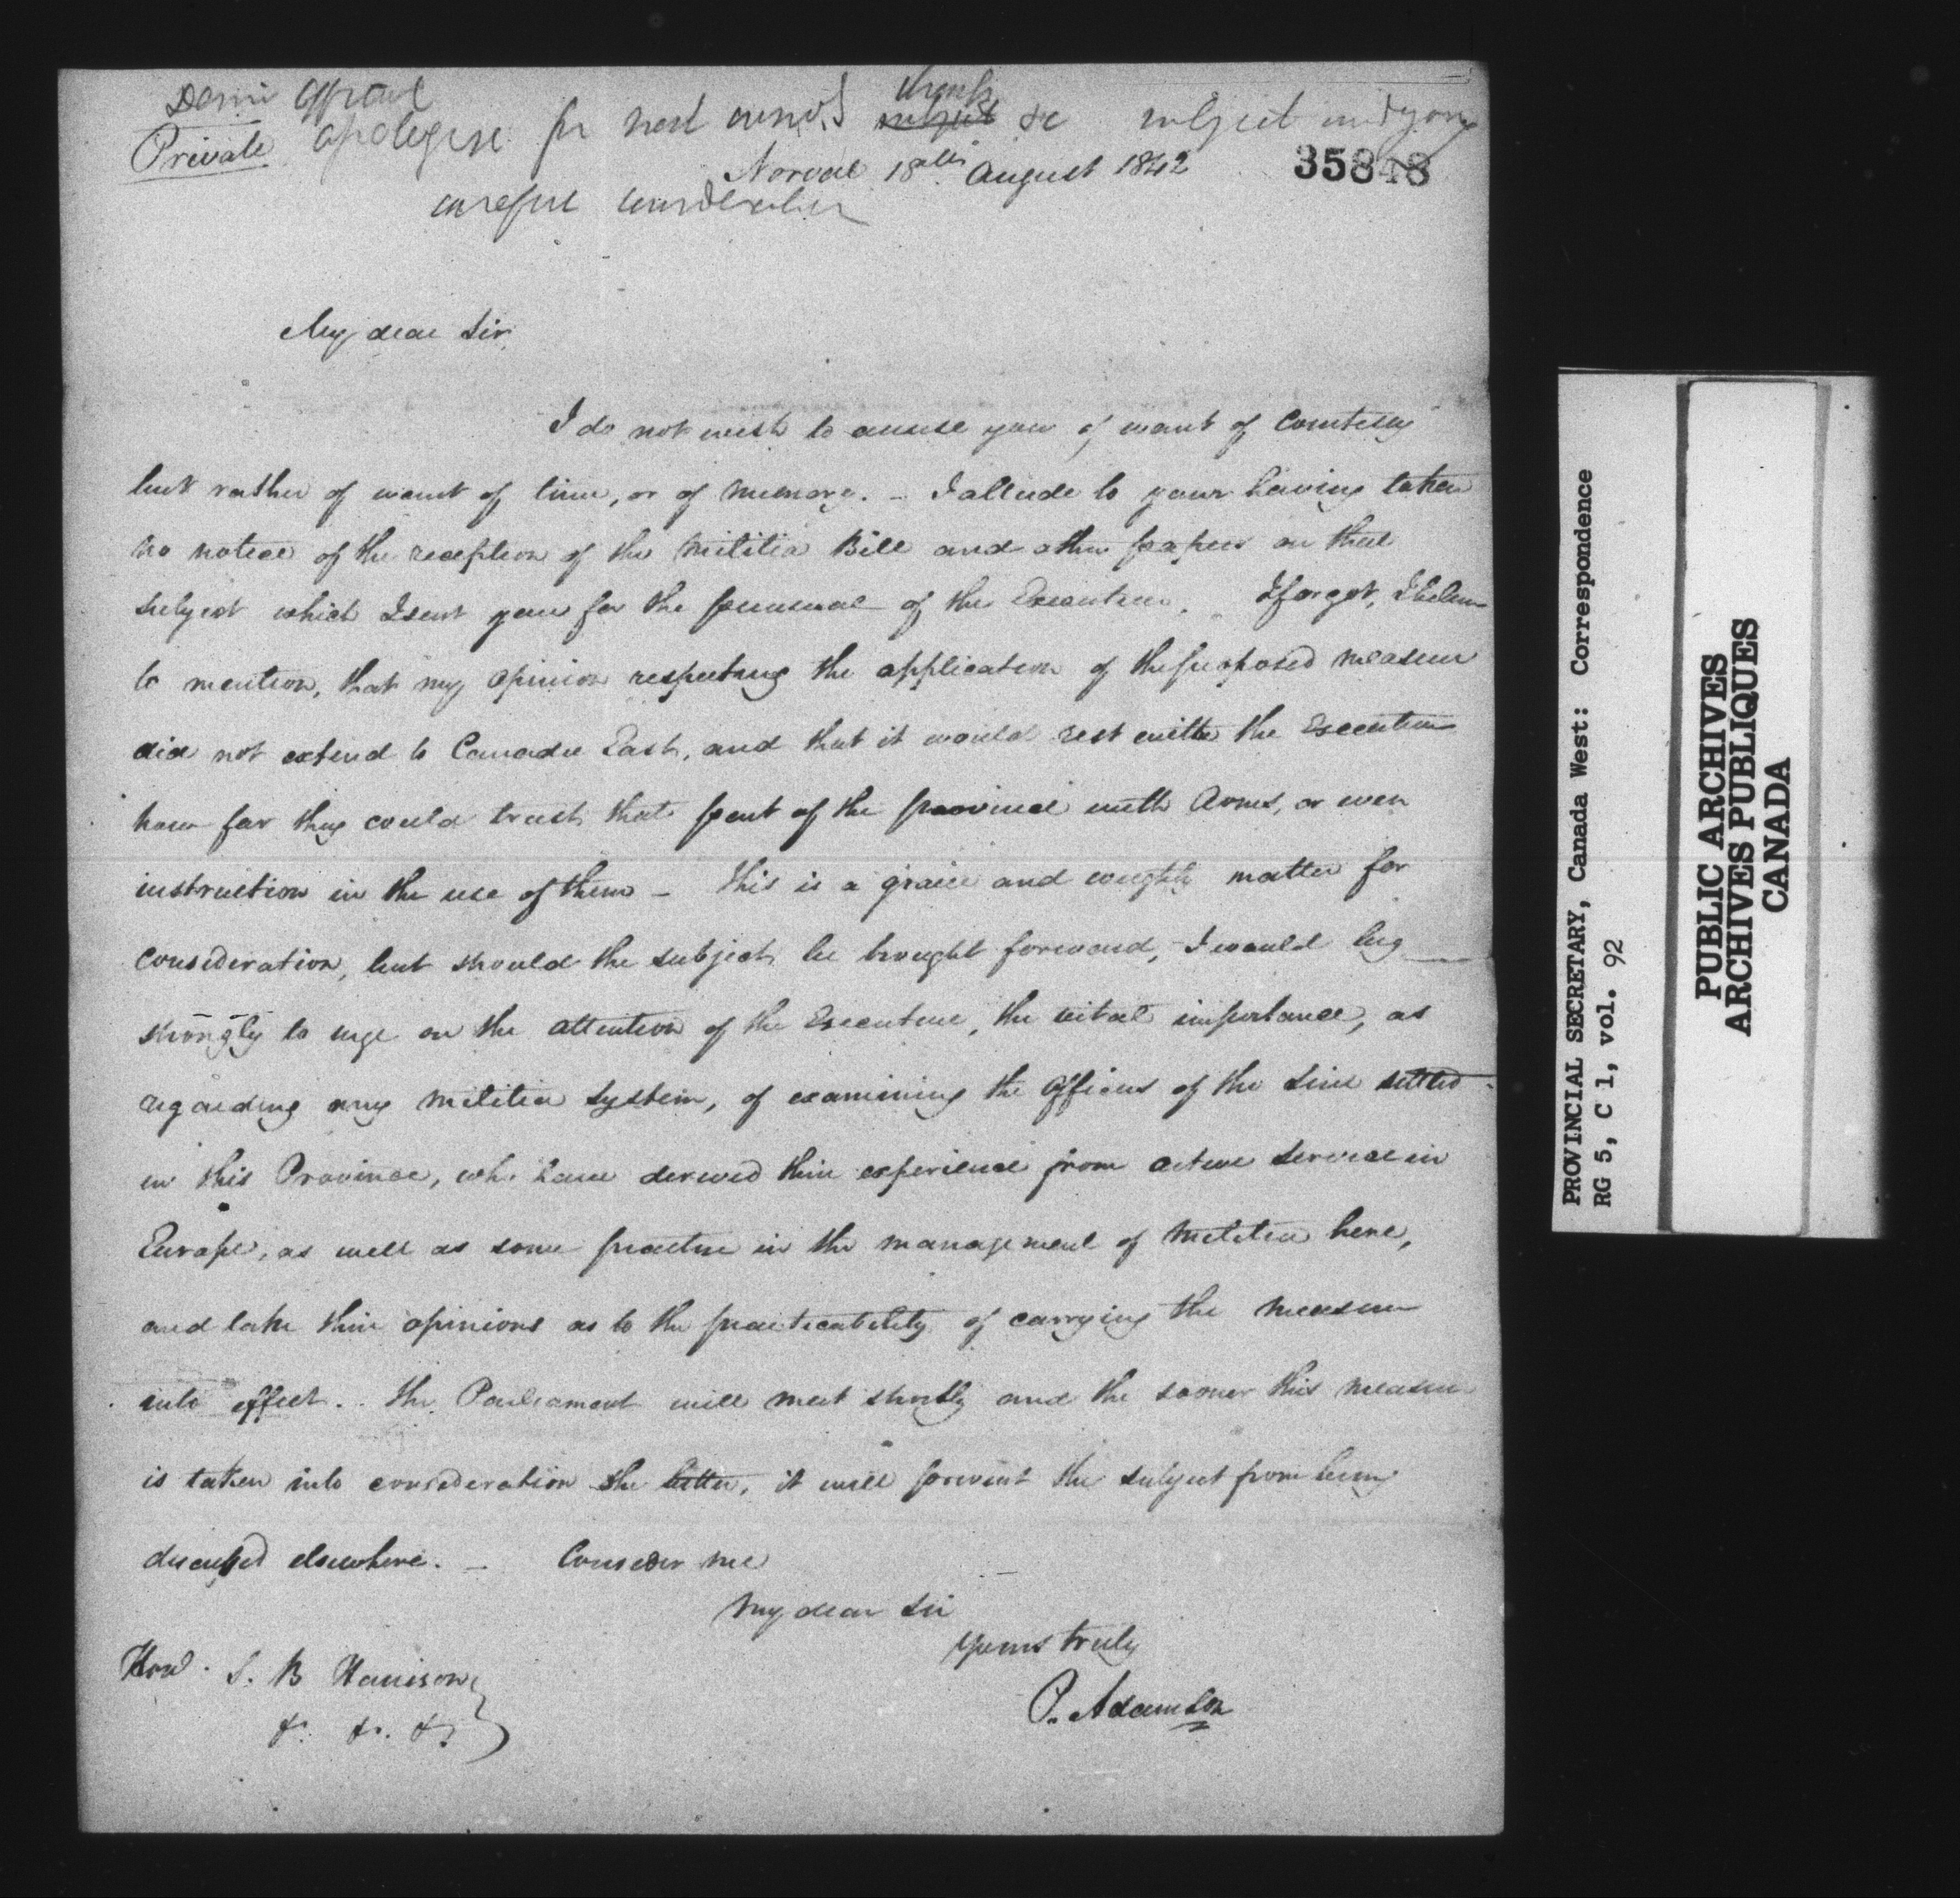 Demi Official
Private apologise for not thanks &c subject undergoing
Norval 18th August 1842
35848
careful consideration
My dear Sir
I do not wish to accuse you of want of Courtesy
but rather of want of time, or of memory. – I allude to your having taken
no notice of the reception of the Militia Bill and other papers on that
subject which I sent you for the perusal of the Executive. I forgot, I believe
to mention, that my opinion respecting the application of the proposed measure
did not extend to Canada East, and that it would rest with the Executive
how far they could trust that part of the province with Arms, or even
instruction in the use of them – This is a grave and weighty matter for
consideration, but should the subject be brought forward, I would beg
strongly to urge on the attention of the Executive, the vital importance, as
regarding any Militia System, of examining the Officers of the Line settled
in this Province, who have derived their experience from active service in
Europe, as well as some practice in the management of Militia here,
and take their opinions as to the practicability of carrying the measure
into effect. . The Parliament will meet shortly and the sooner this measure
is taken into consideration the better, it will prevent the subject from being
discussed elsewhere. – Consider me
My dear Sir
Yours truly
P. Adamson
Honl. S. B Harrison
&. &. &.
PROVINCIAL SECRETARY, Canada West: Correspondence
RG 5, C 1, vol. 92
PUBLIC ARCHIVES
ARCHIVES PUBLIQUES
CANADA